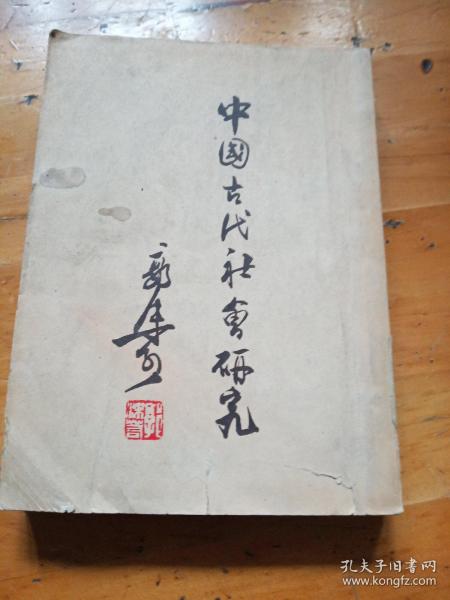 中國古代社會研究
郭沫若
孔夫子旧书网
www.kongfz.com